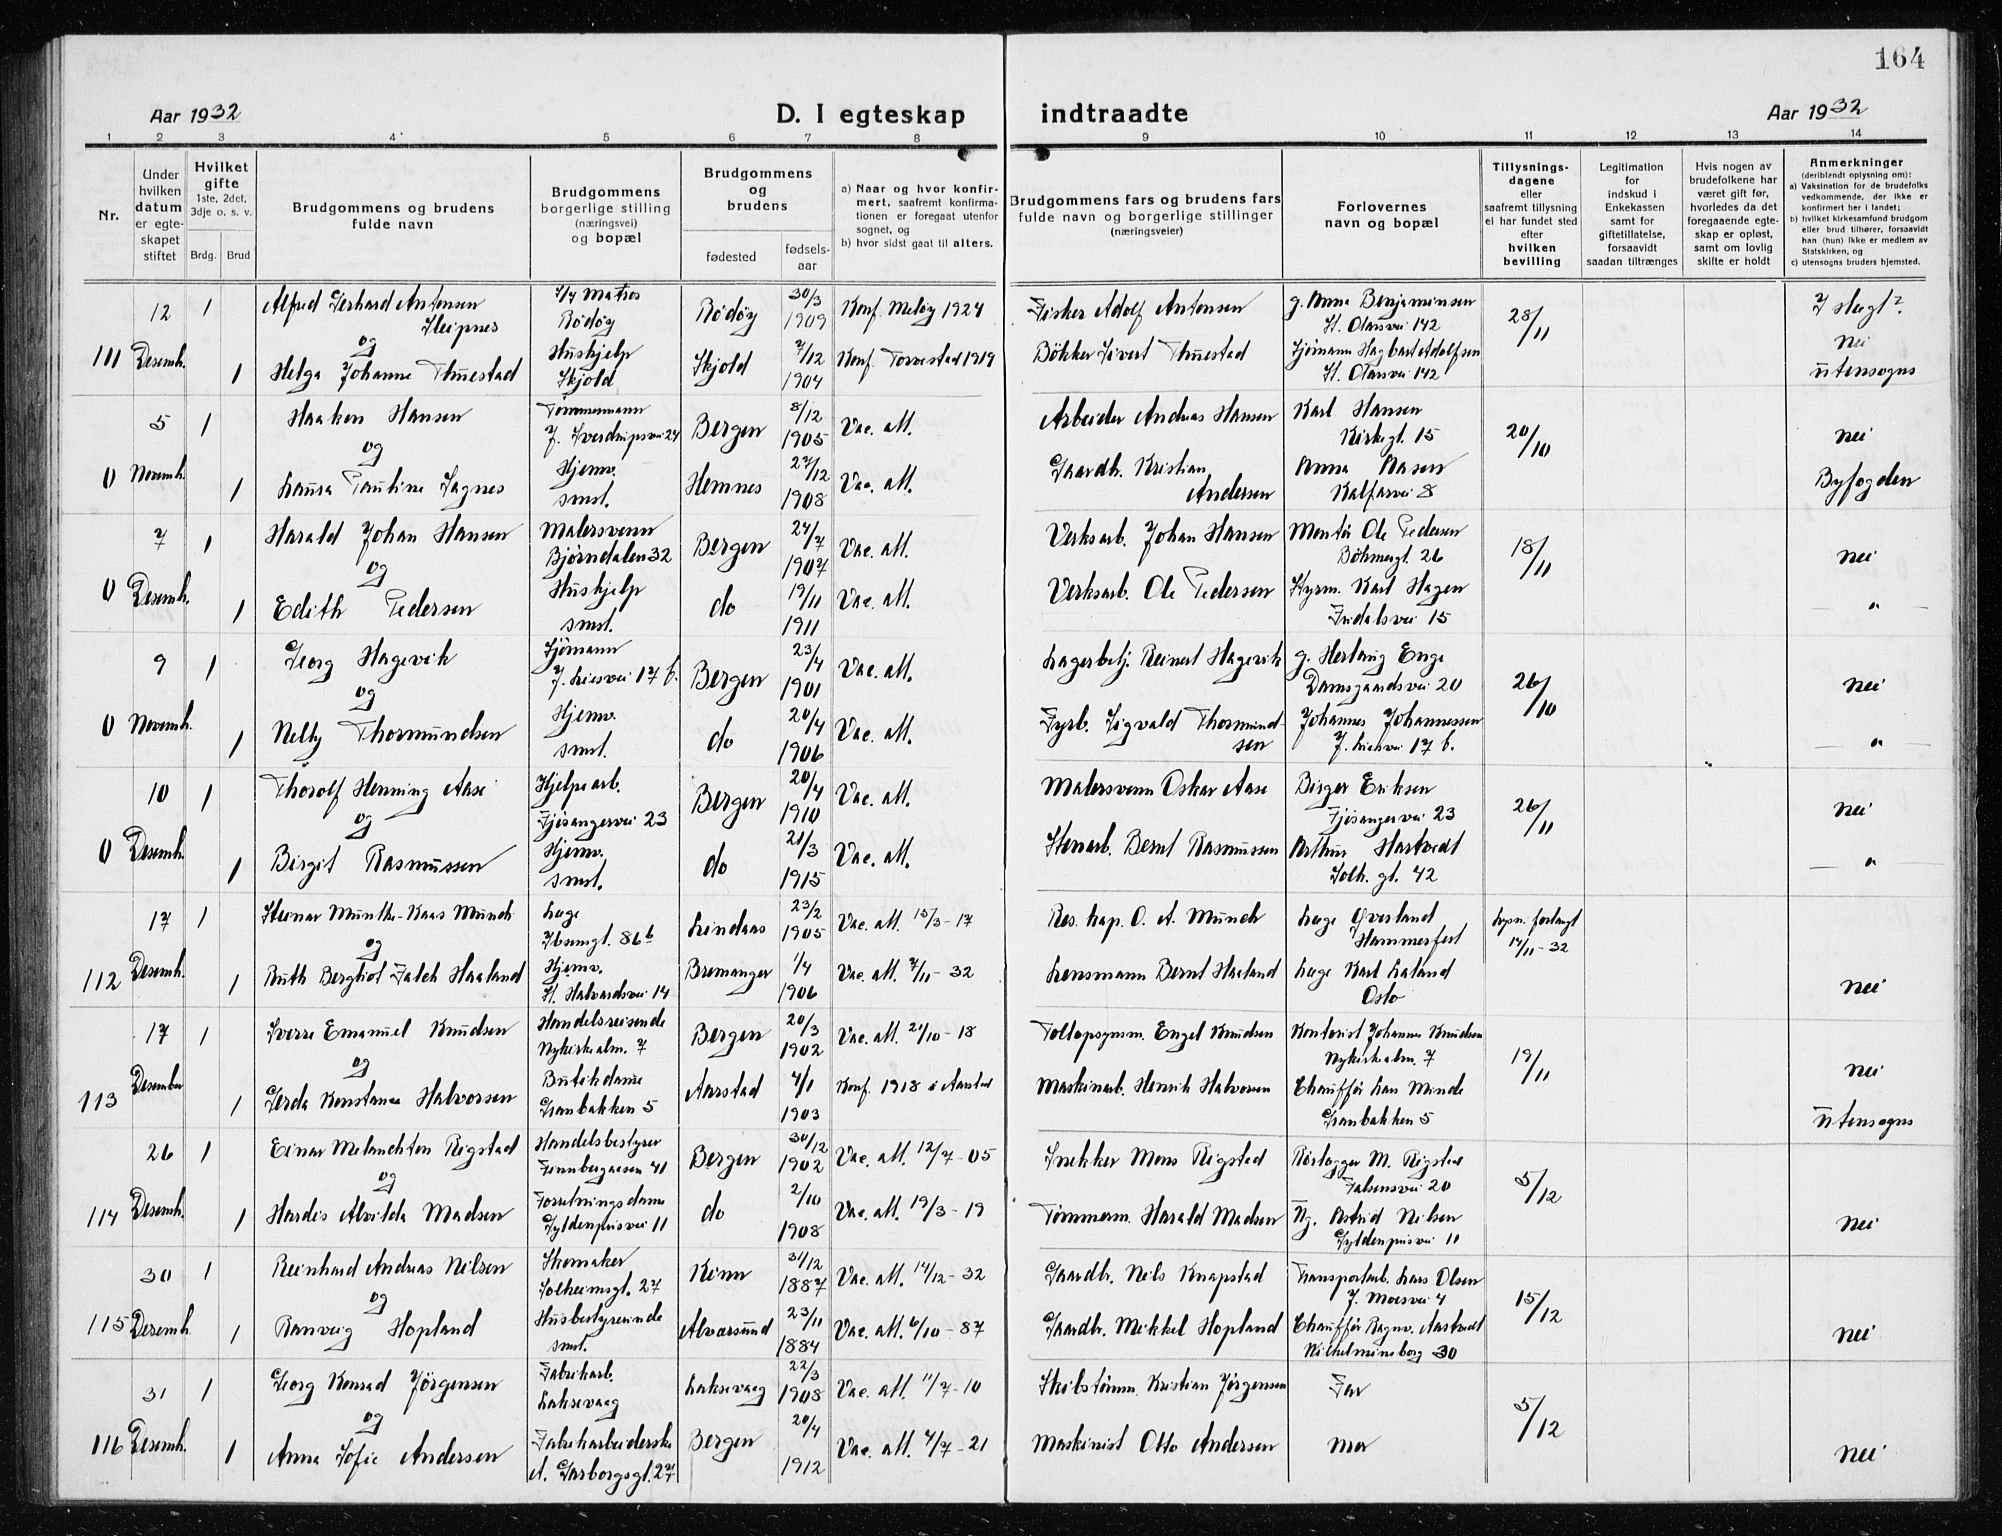 164
Aar 1932
D. I egteskap indtraadte
Aar 1932
1 2 3 4 5 6 7 8 9 10 11 12 13 14
Nr.
Under hvilken datum er egteskapet stiftet
Hvilket gifte 1ste, 2det, 3dje o. s. v.
Brdg. Brud
Brudgommens og brudens fulde navn
Brudgommens borgerlige stilling (næringsvei) og bopæl
Brudgommens og brudens
fødested
fødsels-aar
a) Naar og hvor konfirmert, saafremt konfirmationen er foregaat utenfor sognet, og
b) hvor sidst gaat til alters.
Brudgommens fars og brudens fars fulde navn og borgerlige stillinger (næringsveier)
Forlovernes navn og bopæl
Tillysningsdagene eller saafremt tillysning ei har fundet sted efter hvilken bevilling
Legitimation for indskud i Enkekassen samt for giftetillatelse, forsaavidt saadan tiltrænges
Hvis nogen av brudefolkene har været gift før, hvorledes da det foregaaende egteskap er opløst, samt om lovlig skifte er holdt
Anmerkninger (deriblandt oplysning om):
a) Vaksination for de brudefolks vedkommende, der ikke er konfirmert her i landet;
b) hvilket kirkesamfund brudgom eller brud tilhører, forsaavidt han (hun) ikke er medlem av Statskirken, og
c) utensogns bruders hjemsted.
12 1 Alfred Gerhard Antonsen Sleipnes Matros Rödöy Rödöy 30/3 1909 Konf. Melöy 1924 Fisker Adolf Antonsen g. Anna Benjaminsen St. Olavsvei 142 28/11
og
111 Desemb. 1 Helga Johanne Thuestad Hushjelp Skjold Skjold 7/12 1904 Konf. Torvestad 1919 Bökker Sivert Thuestad Sjömann Hagbart Adolfsen St. Olavsvei 142 nei utensogns
5 1 Haakon Hansen Tömmermann J. Sverdrupsvei 24 Bergen 8/12 1905 Vac. att. Arbeider Andreas Hansen Karl Hansen Kirkegt. 15 20/10 nei
og
0 Novemb. 1 Laura Pauline Sagnes Hjemv. smst. Hemnes 27/12 1908 Vac. att. Gaardbr. Kristian Andersen Anna Aasen Kalfarvei 8 Byfogden
7 1 Harald Johan Hansen Malersvenn Björndalen 32 Bergen 24/7 1907 Vac. att. Verksarb. Johan Hansen Montör Ole Pedersen Böhmergt. 26 18/11 nei
og
0 Desemb. 1 Edith Pedersen Hushjelp smst. do 19/11 1911 Vac. att. Verksarb. Ole Pedersen Styrm. Karl Hagen Fridalsvei 15 — " —
9 1 Georg Hagevik Sjömann J. Liesvei 17 b. Bergen 23/4 1901 Vac. att. Lagerbetj. Reinert Hagevik g. Herlaug Enge Damsgaardsvei 20 26/10 nei
og
0 Novemb. 1 Nelly Thormundsen Hjemv. smst. do 20/4 1906 Vac. att. Fyrb. Sigvald Thormundsen Johannes Johannessen J. Liesvei 17 b. — " —
10 1 Thorolf Henning Aase Hjelpearb. Fjösangervei 23 Bergen 20/4 1910 Vac. att. Malersvenn Oskar Aase Birger Eriksen Fjösangervei 23 26/11 nei
og
0 Desemb. 1 Birgit Rasmussen Hjemv. smst. do 21/3 1915 Vac. att. Stenarb. Bernt Rasmussen Arthur Hartvedt Solh. gt. 42 — " —
17 1 Steinar Munthe-Kaas Munch Læge Ibsensgt. 86b Lindaas 23/2 1905 Vac. att. 15/3-17 Res. kap. O. A. Munch Læge Øverland Hammerfest Lysn. forlangt 17/11-32
og
112 Desemb. 1 Ruth Bergliot Falch Haaland Hjemv. St. Halvardsvei 14 Bremanger 1/4 1906 Vac. att. 7/11-32 Lensmann Bernt Haaland Læge Karl Laland Oslo nei
17 1 Sverre Emanuel Knudsen Handelsreisende Nykirkealm. 7 Bergen 20/3 1902 Vac. att. 21/10-18 Toltopsynsm. Engel Knudsen Kontorist Johannes Knudsen Nykirkealm. 7 19/11 nei
og
113 Desember 1 Gerda Konstanse Halvorsen Butikdame Granbakken 5 Aarstad 4/1 1903 Konf. 1918 i Aarstad Maskinarb. Henrik Halvorsen Chauffør Lars Minde Granbakken 5 utensogns
26 1 Einar Melanchton Rigstad Handelsbestyrer Finnbergaasen 41 Bergen 30/12 1902 Vac. att. 12/7-05 Snekker Mons Rigstad Rørlegger M. Rigstad Falsensvei 20 5/12
og
114 Desemb. 1 Hardis Alvilda Madsen Forretningsdame Gyldenprisvei 11 do 2/10 1908 Vac. att. 19/3-19 Tömmerm. Harald Madsen Astrid Nilsen Gyldenprisvei 11 nei
30 1 Reinhard Andreas Nilsen Skomaker Solheimsgt. 27 Kinn 31/12 1887 Vac. att. 14/12-32 Gaardbr. Nils Knapstad Transportarb. Lars Olsen J. Moesvei 4 15/12
og
115 Desemb. 1 Ranveig Hopland Husbestyrerinde smst. Alversund 23/11 1884 Vac. att. 6/10-87 Gaardbr. Mikkel Hopland Chauffør Ragnv. Aastvedt Wilhelmineborg 30 nei
31 1 Georg Konrad Jörgensen Fabrikarb. Laksevaag Laksevaag 22/3 1908 Vac. att. 11/7-10 Skibstömm. Kristian Jörgensen Far 5/12
og
116 Desemb. 1 Anna Sofie Andersen Fabrikarbeiderske A. Garborgsgt. 27 Bergen 20/4 1912 Vac. att. 4/7-21 Maskinist Otto Andersen mor nei